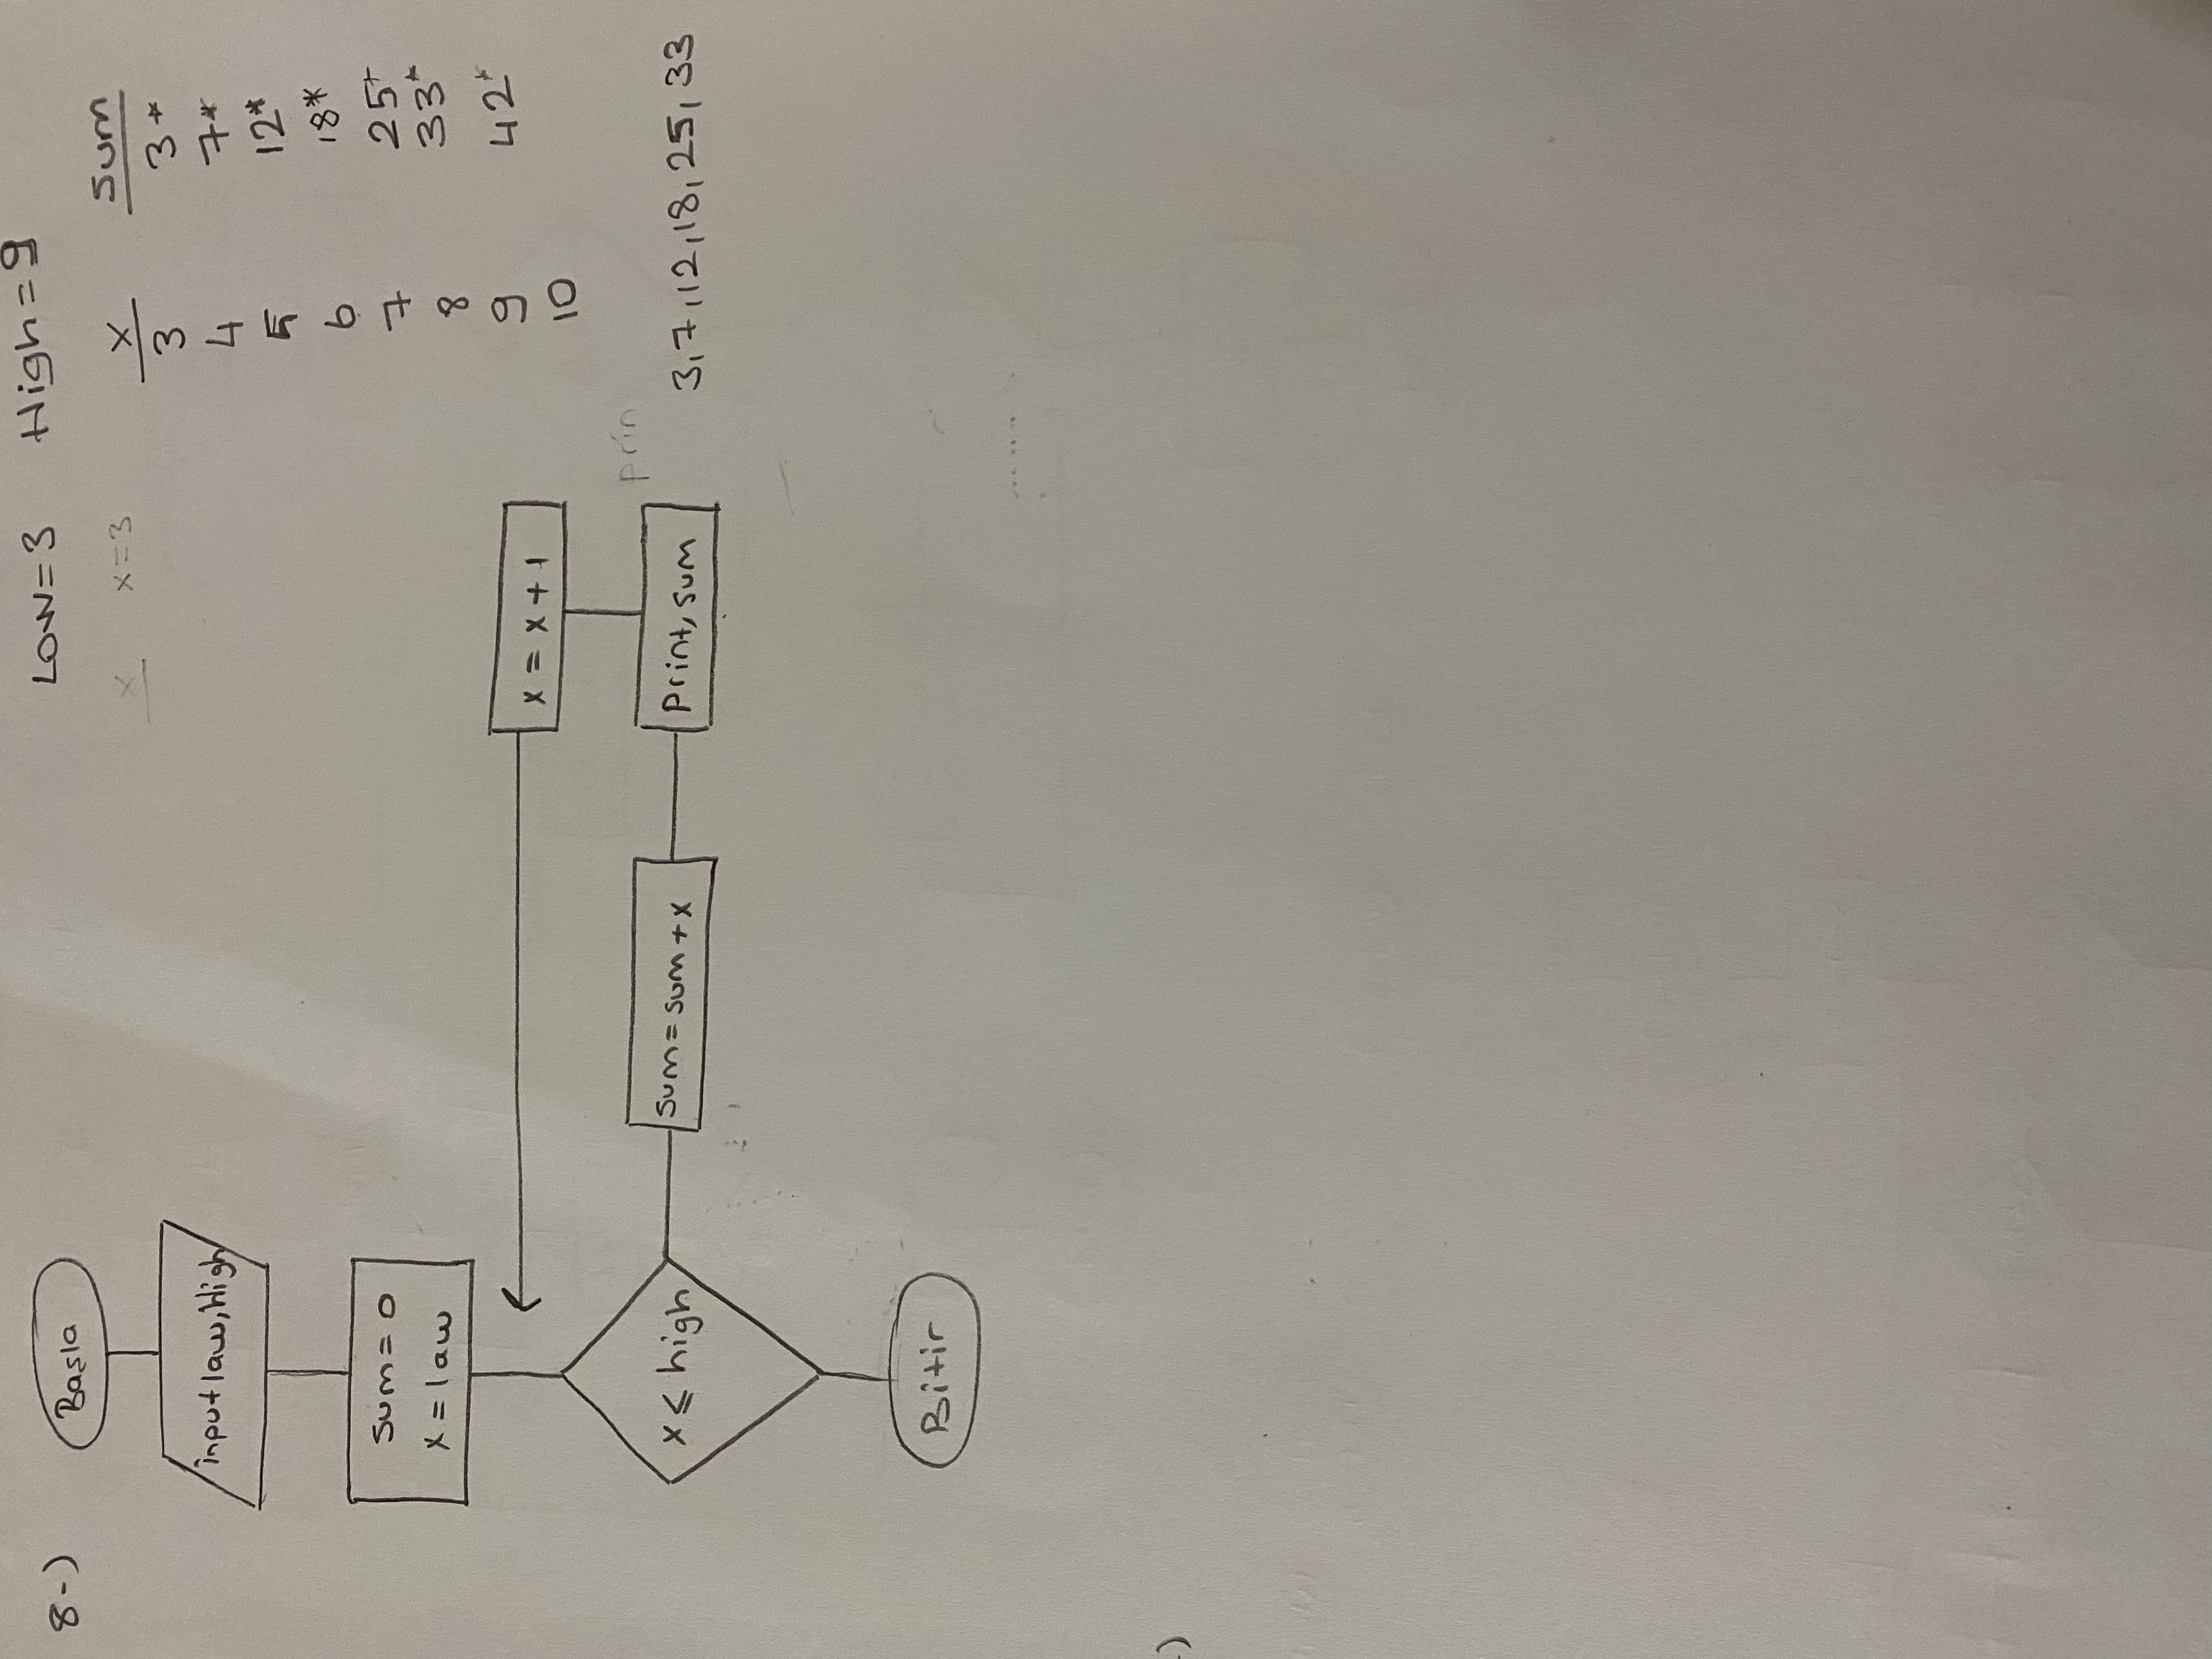 8-)
Başla
input law, High
sum = 0
x = law
x ≤ high
sum = sum + x
Print, sum
x = x + 1
Bitir
Low = 3 High = 9
x x=3
x sum
3 3*
4 7*
5 12*
6 18*
7 25+
8 33*
9 42*
10
prin
3,7,12,18,25,33
-)